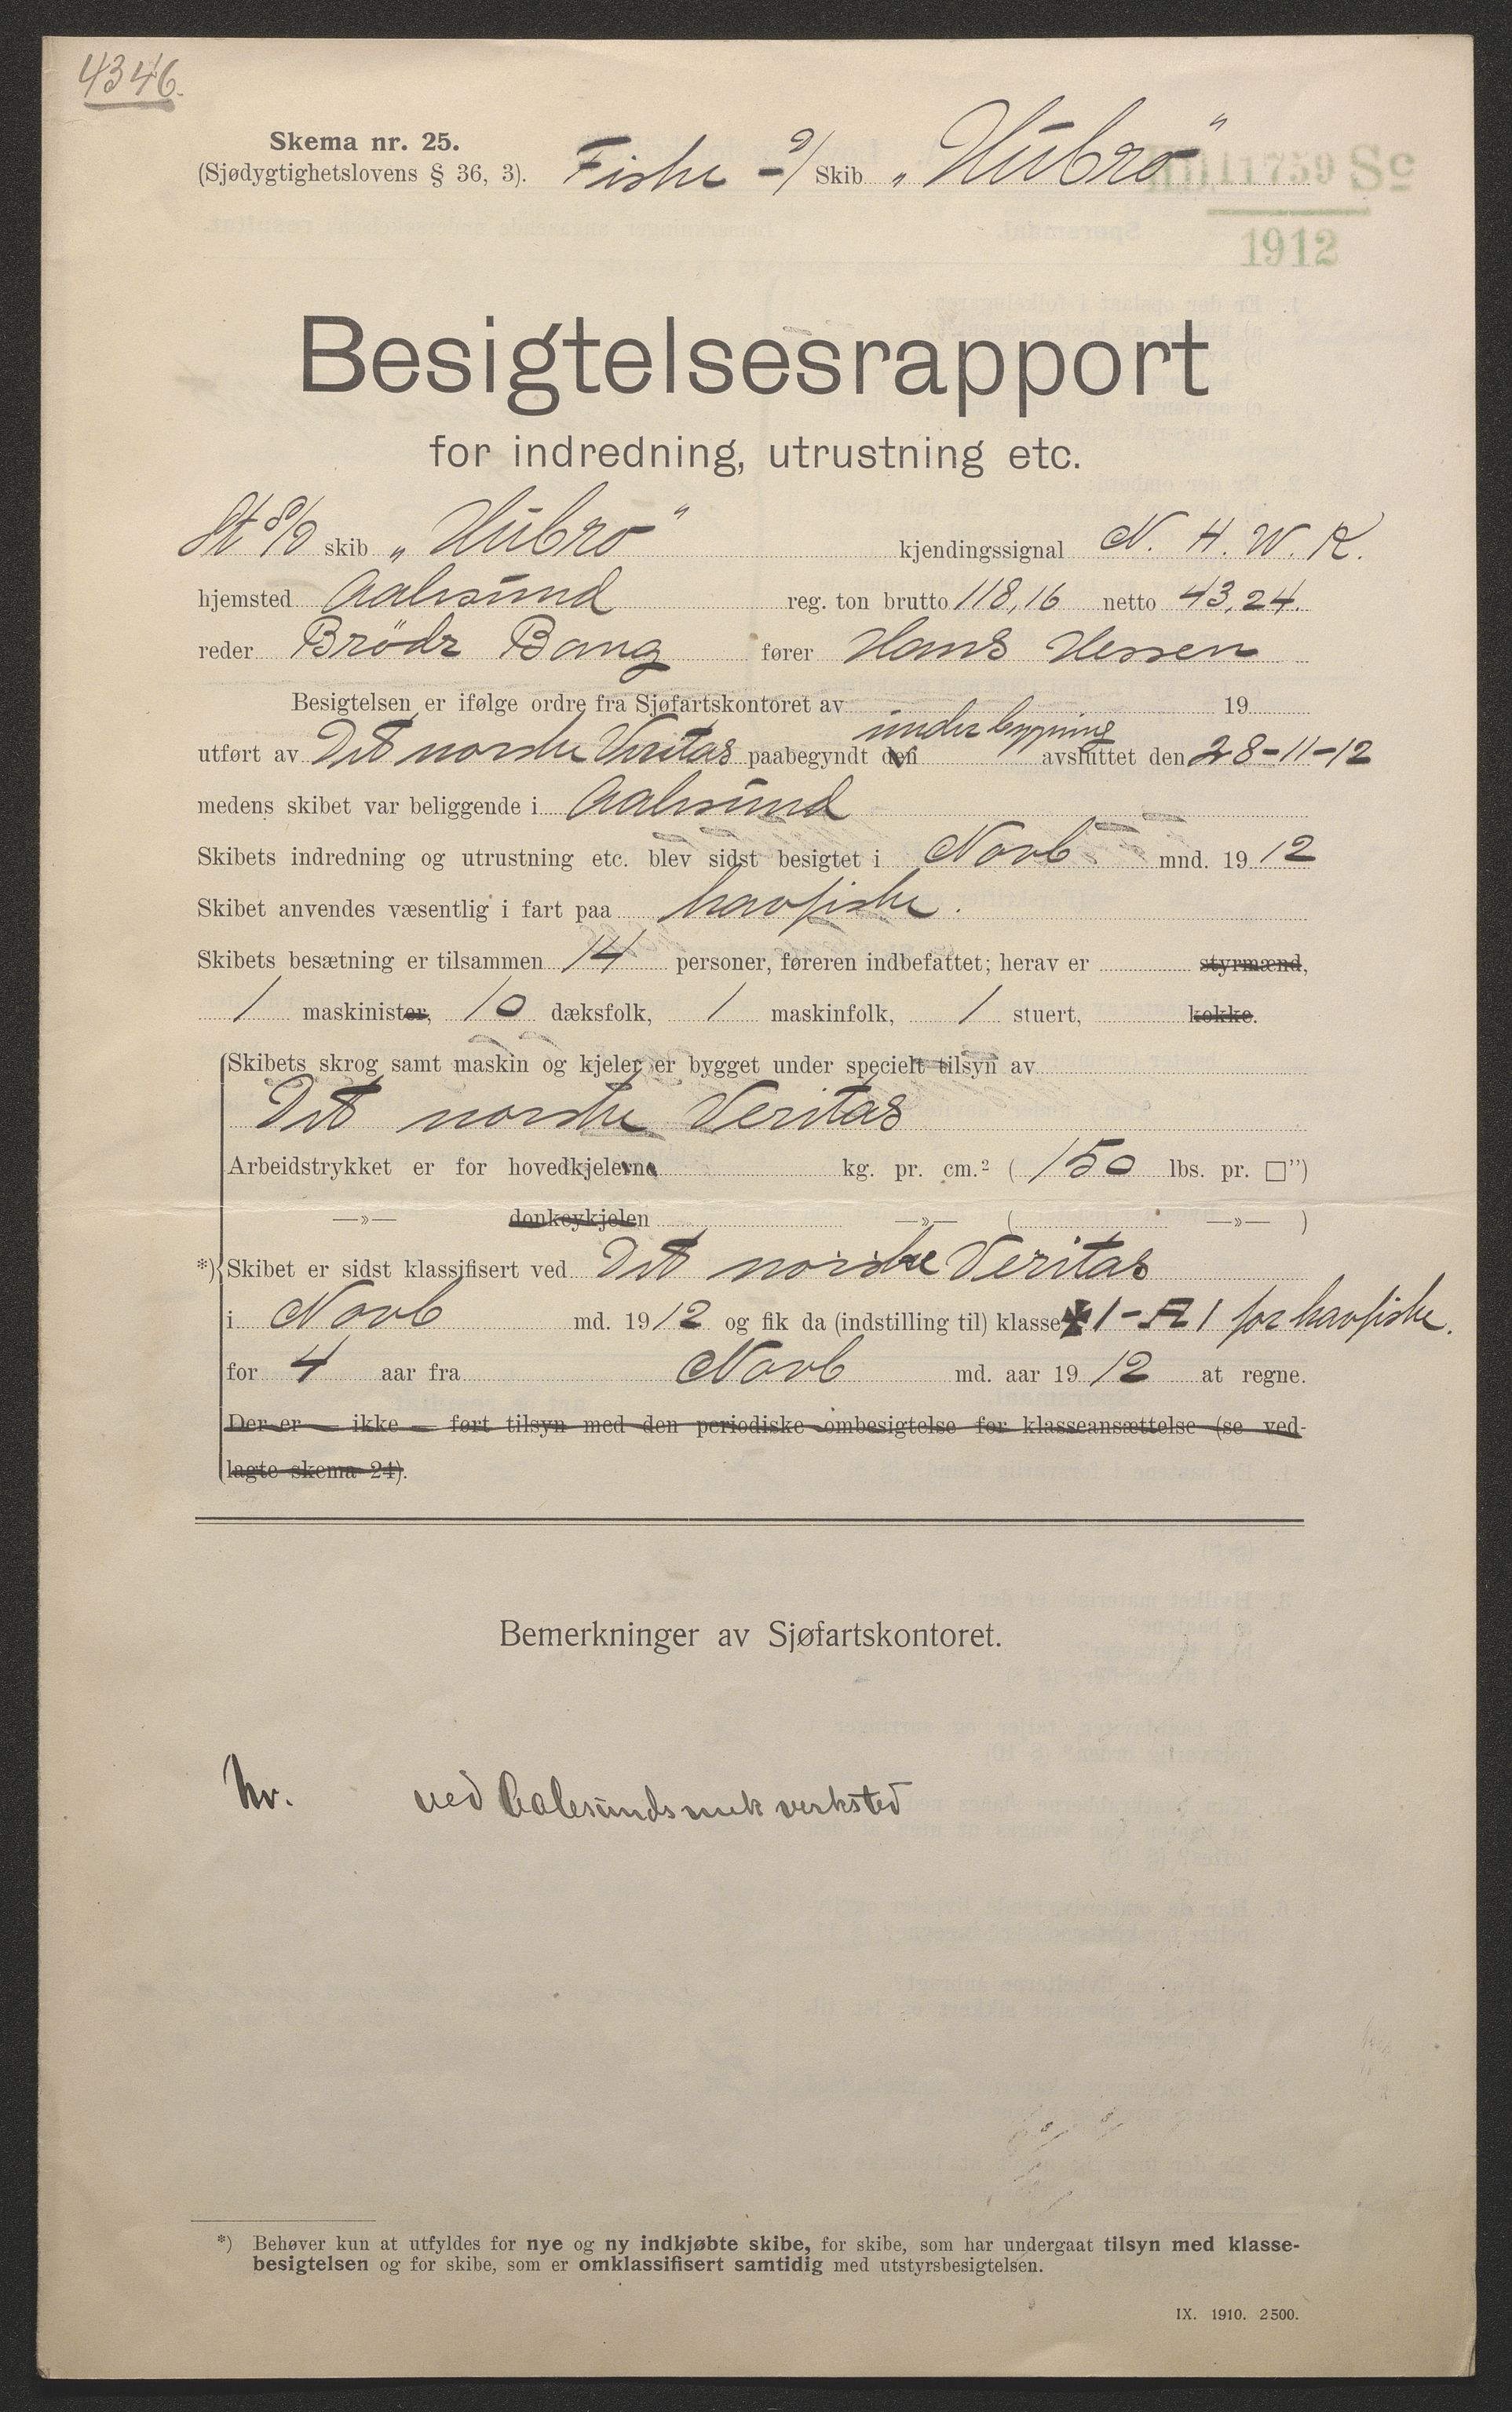 4346.
Skema nr. 25.
(Sjødygtighetslovens § 36, 3). Fiske - S/ Skib „Hubro"
11759 Sc
1912
Besigtelsesrapport
for indredning, utrustning etc.
St S/S skib „Hubro" kjendingssignal N. H. W. K.
hjemsted Aalesund reg. ton brutto 118,16 netto 43,24.
reder Brödr Bang fører Hans Hessen
Besigtelsen er ifølge ordre fra Sjøfartskontoret av 19
utført av Det norske Veritas paabegyndt den under bygning avsluttet den 28-11-12
medens skibet var beliggende i Aalesund
Skibets indredning og utrustning etc. blev sidst besigtet i Novb mnd. 19 12
Skibet anvendes væsentlig i fart paa havfiske.
Skibets besætning er tilsammen 14 personer, føreren indbefattet; herav er styrmænd,
1 maskinister, 10 dæksfolk, 1 maskinfolk, 1 stuert, kokke.
Skibets skrog samt maskin og kjeler er bygget under specielt tilsyn av
Det norske Veritas
Arbeidstrykket er for hovedkjelerne kg. pr. cm.² ( 150 lbs. pr. □")
—»— donkeykjelen —»— ( —»— )
*) Skibet er sidst klassifisert ved Det norske Veritas
i Novb md. 19 12 og fik da (indstilling til) klasse ✠ 1 - A 1 for havfiske.
for 4 aar fra Novb md. aar 19 12 at regne.
Der er — ikke — ført tilsyn med den periodiske ombesigtelse for klasseansættelse (se ved-
lagte skema 24).
Bemerkninger av Sjøfartskontoret.
ved Aalesunds mek verksted
*) Behøver kun at utfyldes for nye og ny indkjøbte skibe, for skibe, som har undergaat tilsyn med klasse-
besigtelsen og for skibe, som er omklassifisert samtidig med utstyrsbesigtelsen.
IX. 1910. 2500.